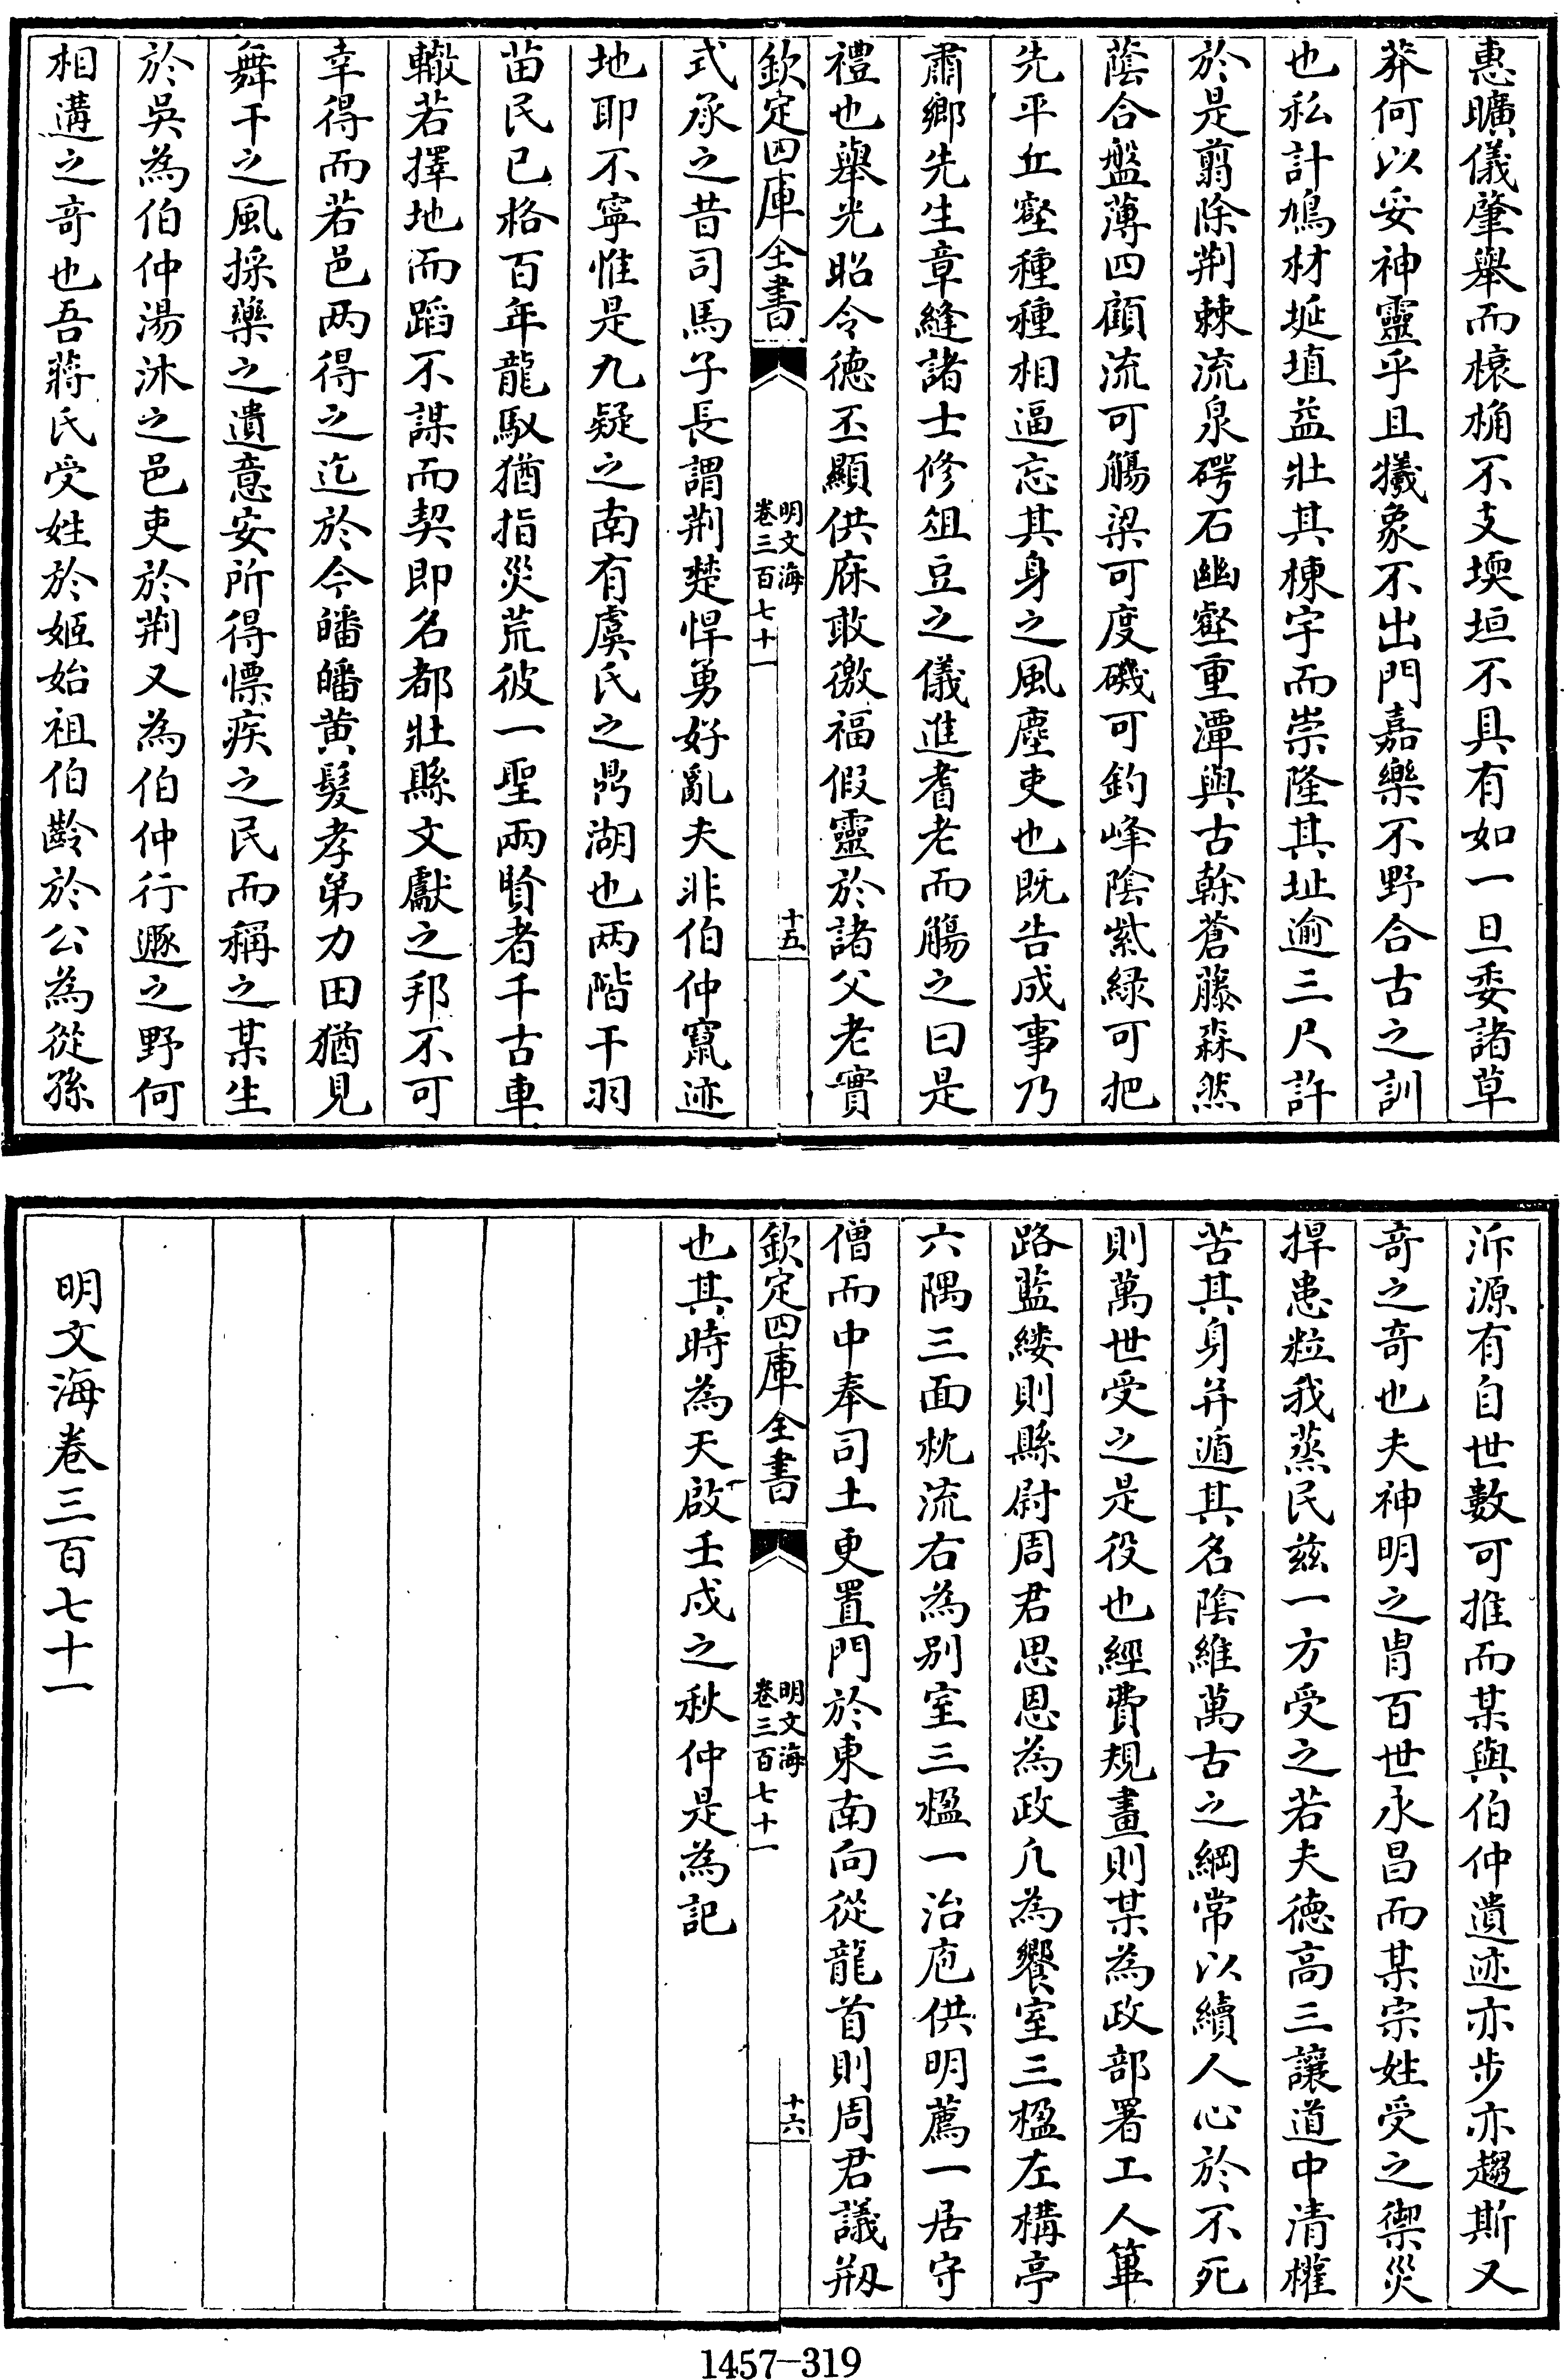 惠曠儀肇舉而榱桷不支堧垣不具有如一旦委諸草
莽何以妥神靈乎且犧象不出門嘉樂不野合古之訓
也私計鳩材埏埴益壯其棟宇而崇隆其址逾三尺許
於是翦除荆棘流泉磍石幽壑重潭與古榦蒼藤森然
蔭合盤薄四顧流可觴梁可度磯可釣峰陰紫緑可把
先平丘壑種種相逼忘其身之風塵吏也既告成事乃
肅鄉先生章縫諸士修俎豆之儀進耆老而觴之曰是
禮也舉光昭令德丕顯供庥敢徼福假靈於諸父老實
欽定四庫全書
明文海
卷三百七十一
十五
式承之昔司馬子長謂荆楚悍勇好亂夫非伯仲竄迹
地耶不寧惟是九疑之南有虞氏之鼎湖也两階干羽
苗民已格百年龍馭猶指災荒彼一聖兩賢者千古車
轍若擇地而蹈不謀而契即名都壯縣文獻之邦不可
幸得而若邑两得之迄於今皤皤黄髮孝弟力田猶見
舞干之風採藥之遺意安所得慓疾之民而稱之某生
於吳為伯仲湯沐之邑吏於荆又為伯仲行遯之野何
相遘之奇也吾蔣氏受姓於姬始祖伯齡於公為從孫
泝源有自世數可推而某與伯仲遺迹亦步亦趨斯又
奇之奇也夫神明之胄百世永昌而某宗姓受之禦災
捍患粒我蒸民兹一方受之若夫德高三讓道中清權
苦其身并遁其名陰維萬古之綱常以續人心於不死
則萬世受之是役也經費規畫則某為政部署工人篳
路藍縷則縣尉周君思恩為政凡為饗室三楹左構亭
六隅三面枕流右為别室三楹一治庖供明薦一居守
僧而中奉司土更置門於東南向從龍首則周君議剏
欽定四庫全書
明文海
卷三百七十一
十六
也其時為天啟壬戌之秋仲是為記
明文海卷三百七十一
1457-319